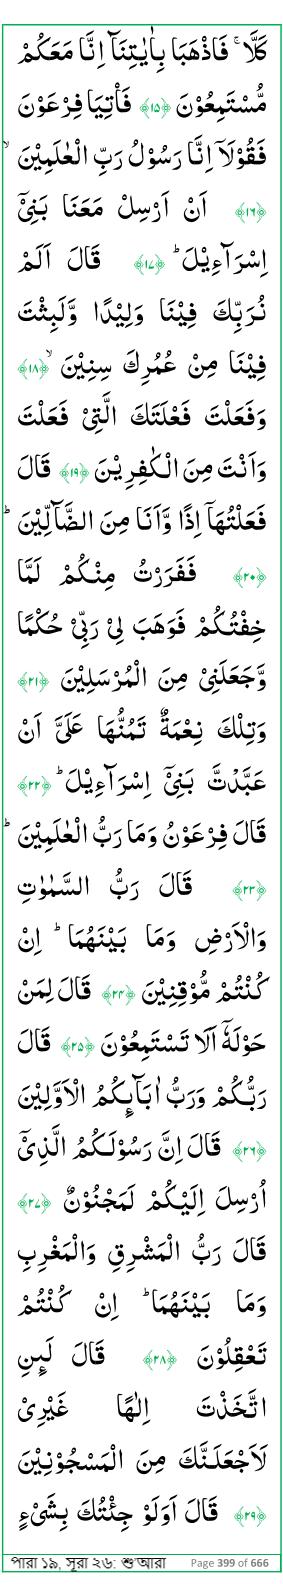 كَلَّا ۚ فَاذْهَبَا بِاٰيٰتِنَاۤ اِنَّا مَعَكُمْ
مُّسْتَمِعُوْنَ ﴿۱۵﴾ فَاْتِيَا فِرْعَوْنَ
فَقُوْلَاۤ اِنَّا رَسُوْلُ رَبِّ الْعٰلَمِيْنَ ۙ
﴿۱۶﴾ اَنْ اَرْسِلْ مَعَنَا بَنِيْۤ
اِسْرَآءِيْلَ ؕ ﴿۱۷﴾ قَالَ اَلَمْ
نُرَبِّكَ فِيْنَا وَلِيْدًا وَّلَبِثْتَ
فِيْنَا مِنْ عُمُرِكَ سِنِيْنَ ۙ ﴿۱۸﴾
وَفَعَلْتَ فَعْلَتَكَ الَّتِيْ فَعَلْتَ
وَاَنْتَ مِنَ الْكٰفِرِيْنَ ﴿۱۹﴾ قَالَ
فَعَلْتُهَاۤ اِذًا وَّاَنَا مِنَ الضَّآلِّيْنَ ؕ
﴿۲۰﴾ فَفَرَرْتُ مِنْكُمْ لَمَّا
خِفْتُكُمْ فَوَهَبَ لِيْ رَبِّيْ حُكْمًا
وَّجَعَلَنِيْ مِنَ الْمُرْسَلِيْنَ ﴿۲۱﴾
وَتِلْكَ نِعْمَةٌ تَمُنُّهَا عَلَيَّ اَنْ
عَبَّدْتَّ بَنِيْۤ اِسْرَآءِيْلَ ؕ ﴿۲۲﴾
قَالَ فِرْعَوْنُ وَمَا رَبُّ الْعٰلَمِيْنَ ؕ
﴿۲۳﴾ قَالَ رَبُّ السَّمٰوٰتِ
وَالْاَرْضِ وَمَا بَيْنَهُمَا ؕ اِنْ
كُنْتُمْ مُّوْقِنِيْنَ ﴿۲۴﴾ قَالَ لِمَنْ
حَوْلَهٗۤ اَلَا تَسْتَمِعُوْنَ ﴿۲۵﴾ قَالَ
رَبُّكُمْ وَرَبُّ اٰبَآىِٕكُمُ الْاَوَّلِيْنَ
﴿۲۶﴾ قَالَ اِنَّ رَسُوْلَكُمُ الَّذِيْۤ
اُرْسِلَ اِلَيْكُمْ لَمَجْنُوْنٌ ﴿۲۷﴾
قَالَ رَبُّ الْمَشْرِقِ وَالْمَغْرِبِ
وَمَا بَيْنَهُمَا ؕ اِنْ كُنْتُمْ
تَعْقِلُوْنَ ﴿۲۸﴾ قَالَ لَىِٕنِ
اتَّخَذْتَ اِلٰهًا غَيْرِيْ
لَاَجْعَلَنَّكَ مِنَ الْمَسْجُوْنِيْنَ
﴿۲۹﴾ قَالَ اَوَلَوْ جِئْتُكَ بِشَيْءٍ
পারা ১৯, সূরা ২৬: শু'আরা Page 399 of 666